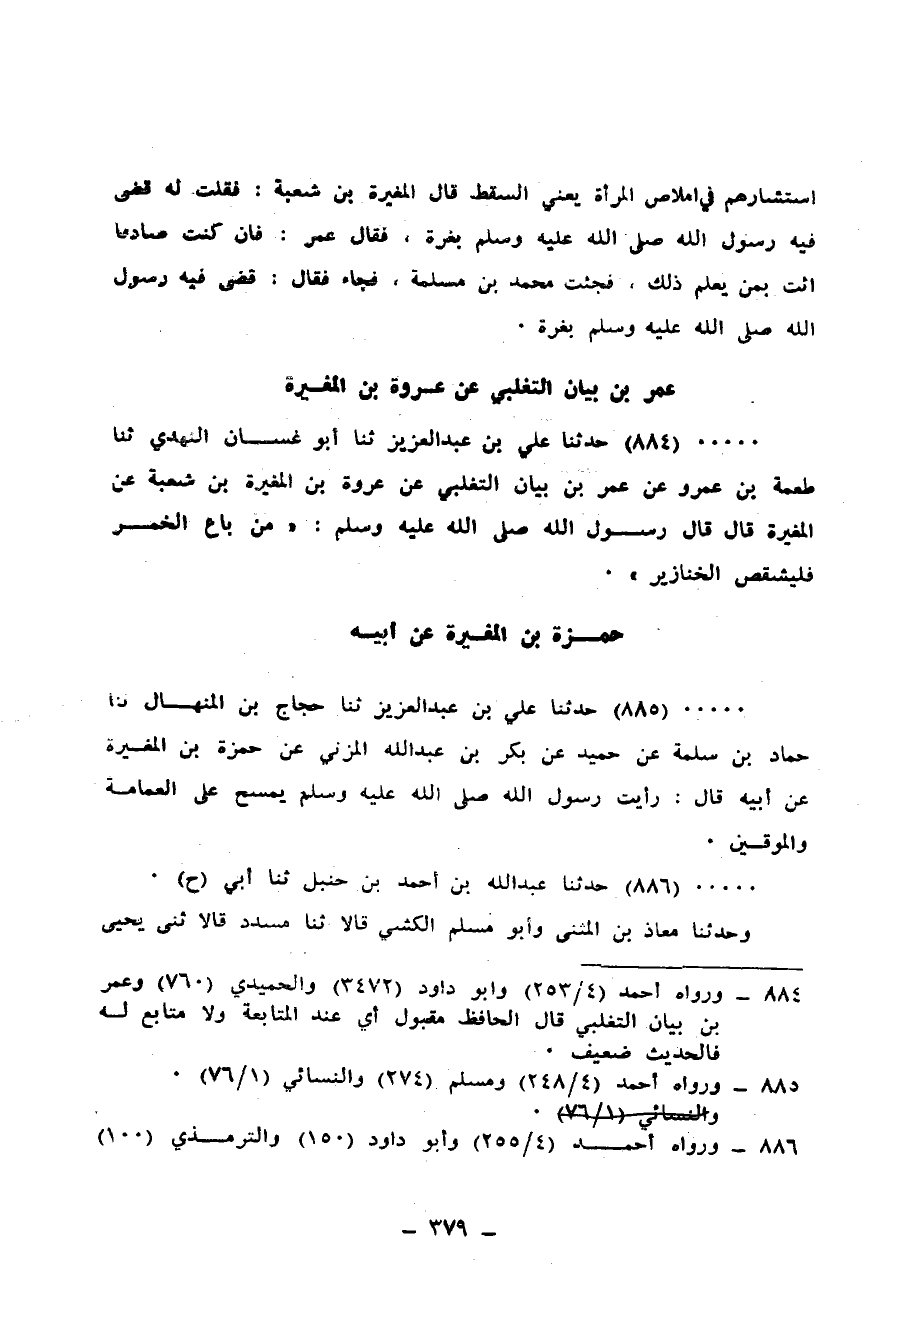 استشارهم في املاص المرأة يعني السقط قال المغيرة بن شعبة : فقلت له قضى
فيه رسول الله صلى الله عليه وسلم بغرة ، فقال عمر : فان كنت صادقا
ائت بمن يعلم ذلك ، فجئت محمد بن مسلمة ، فجاء فقال : قضى فيه رسول
الله صلى الله عليه وسلم بغرة ٠
عمر بن بيان التغلبي عن عـروة بن المغـيرة
٠٠٠٠٠ (٨٨٤) حدثنا علي بن عبدالعزيز ثنا أبو غســـان النهدي ثنا
طعمة بن عمرو عن عمر بن بيان التغلبي عن عروة بن المغيرة بن شعبة عن
المغيرة قال قال رســـول الله صلى الله عليه وسلم : « من باع الخمـــر
فليشقص الخنازير » ٠
حمـــزة بن المغـيرة عن أبيـه
٠٠٠٠٠ (٨٨٥) حدثنا علي بن عبدالعزيز ثنا حجاج بن المنهـــال ثنا
حماد بن سلمة عن حميد عن بكر بن عبدالله المزني عن حمزة بن المغـيرة
عن أبيه قال : رأيت رسول الله صلى الله عليه وسلم يمسح على العمامـة
والموقـين ٠
٠٠٠٠٠ (٨٨٦) حدثنا عبدالله بن أحمد بن حنبل ثنا أبي (ح) ٠
وحدثنا معاذ بن المثنى وأبو مسلم الكشي قالا ثنا مسدد قالا ثنى يحيى
٨٨٤ ـ ورواه أحمد (٢٥٣/٤) وابو داود (٣٤٧٢) والحميدي (٧٦٠) وعمر
بن بيان التغلبي قال الحافظ مقبول أي عند المتابعة ولا متابع لـه
فالحديث ضعيف ٠
٨٨٥ ـ ورواه أحمد (٢٤٨/٤) ومسلم (٢٧٤) والنسائي (٧٦/١) ٠
والنسائي (٧٦/١) ٠
٨٨٦ ـ ورواه أحمـــد (٢٥٥/٤) وأبو داود (١٥٠) والترمـذي (١٠٠)
ـ ٣٧٩ ـ